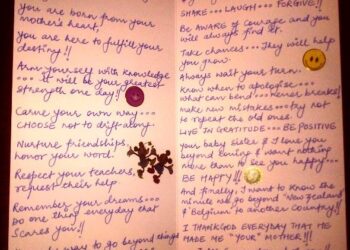 You are born from your
mother's heart,
you are here to fulfill your
destiny!!
Arm yourself with knowledge
... It will be your greatest
strength one day!
Carve your own way...
CHOOSE not to drift along.
Nurture friendships,
honor your word.
Respect your teachers,
request their help
Remember your dreams...
Do one thing everyday that
Scares you!!
ways to go beyond things
SHARE... LAUGH... FORGIVE!!
Be aware of courage and you
will always find it.
Take chances... They will help
you grow.
Always wait your turn.
Know when to apologise...
what can bend... never breaks!
make new mistakes... try not
to repeat the old ones.
LIVE IN GRATITUDE... BE POSITIVE
your baby sister & I love you
beyond & want nothing
more than to see you happy...
BE HAPPY!!!
And finally, I want to know the
minute will go beyond "New Zealand
& Belgium to another Country!!
I THANKGOD EVERYDAY THAT HE
MADE ME "YOUR" MOTHER!!